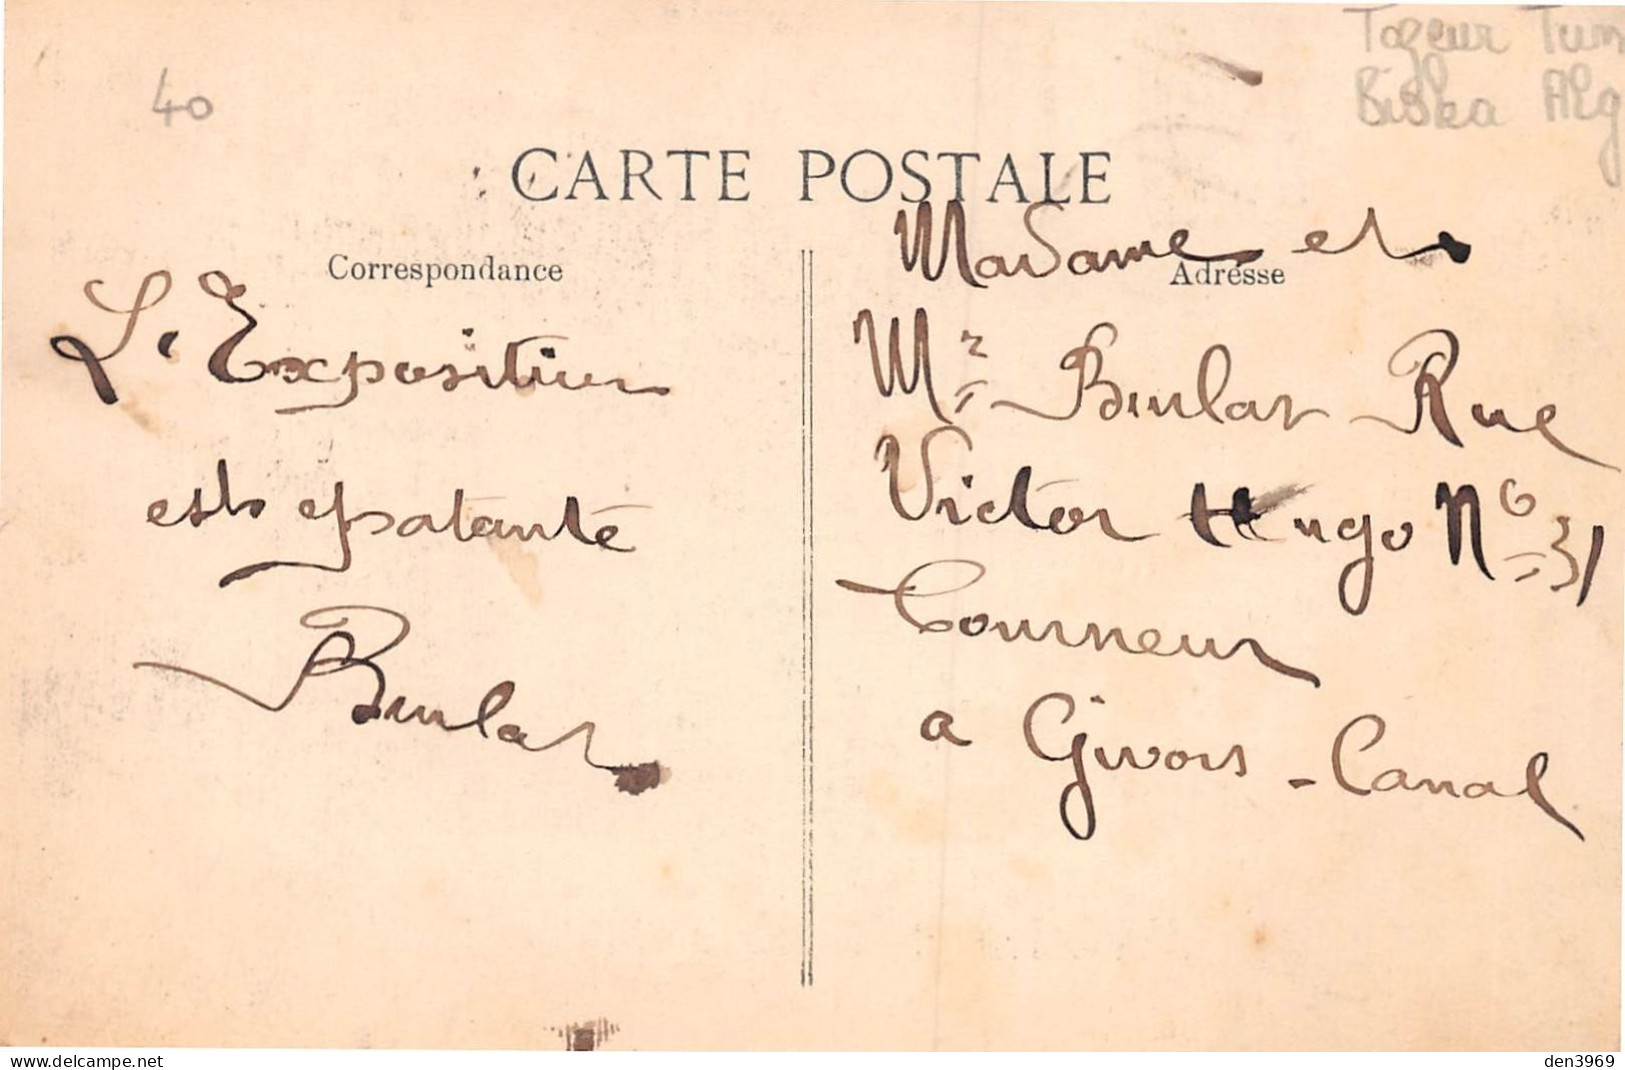 Tozeur Tun
Biskra Alg
40
CARTE POSTALE
Correspondance
L'Exposition
est epatante
Burlat
Adresse
Madame et
Mr Burlat Rue
Victor Hugo No 31
Tourneur
a Givors - Canal
www.delcampe.net
den3969